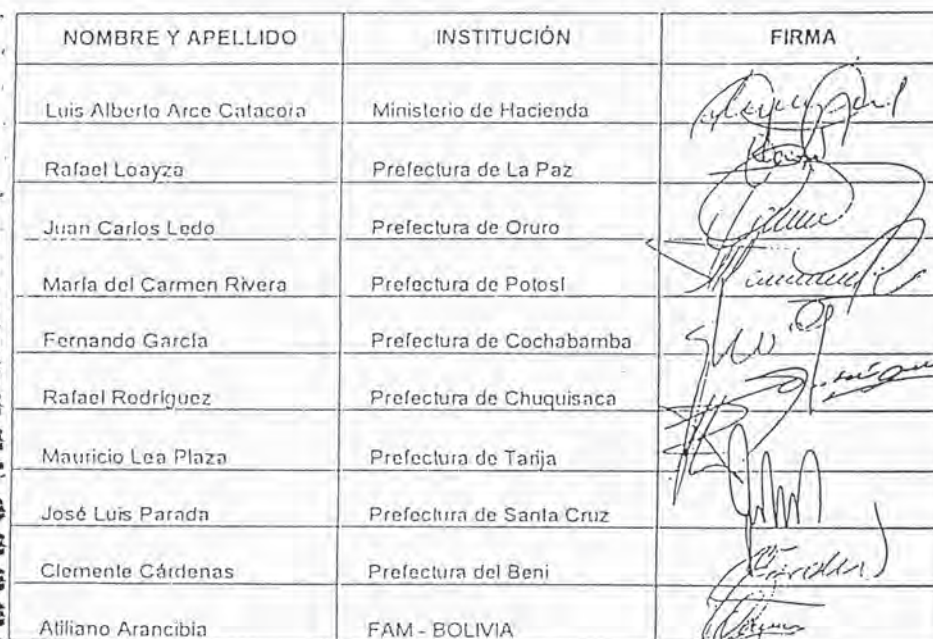 NOMBRE Y APELLIDO INSTITUCIÓN FIRMA
Luis Alberto Arce Catacora Ministerio de Hacienda
Rafael Loayza Prefectura de La Paz
Juan Carlos Ledo Prefectura de Oruro
María del Carmen Rivera Prefectura de Potosí
Fernando García Prefectura de Cochabamba
Rafael Rodríguez Prefectura de Chuquisaca
Mauricio Lea Plaza Prefectura de Tarija
José Luis Parada Prefectura de Santa Cruz
Clemente Cárdenas Prefectura del Beni
Atiliano Arancibia FAM - BOLIVIA